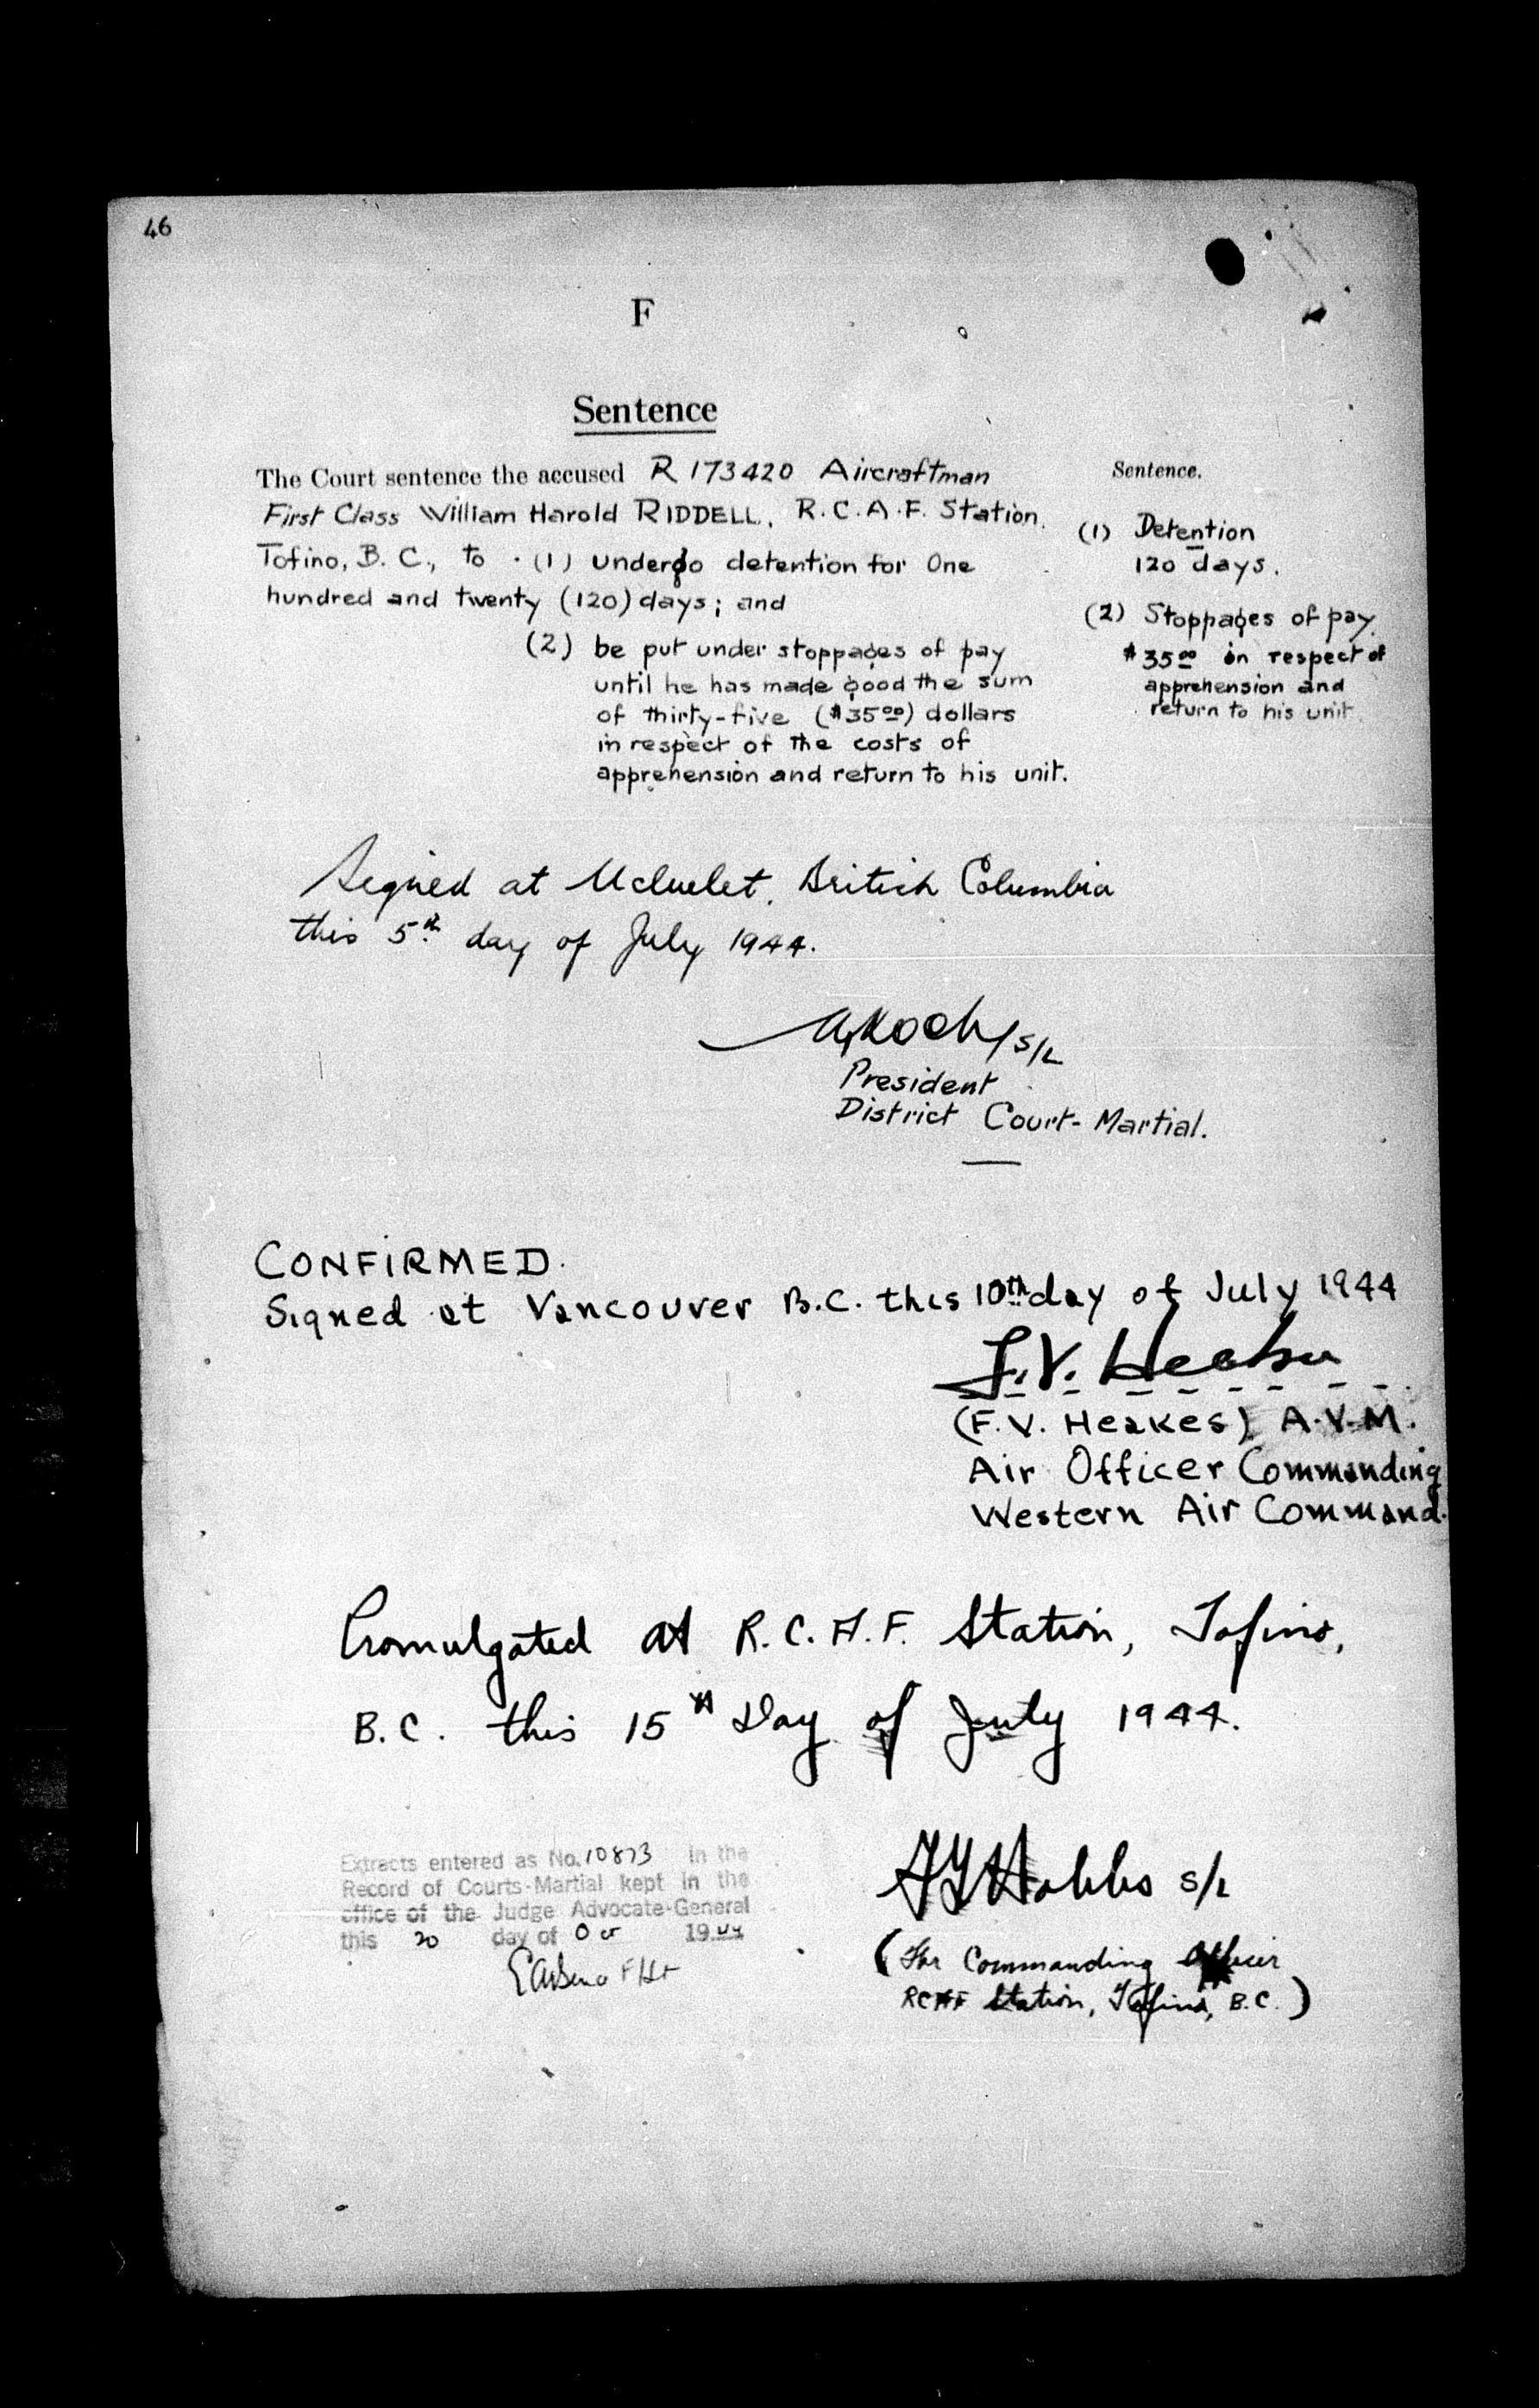 46
F
Sentence
The Court sentence the accused R 173420 Aircraftman
First Class William Harold RIDDELL, R.C.A.F. Station,
Tofino, B.C., to (1) undergo detention for One
hundred and twenty (120) days; and
(2) be put under stoppages of pay
until he has made good the sum
of thirty-five ($35.00) dollars
in respect of the costs of
apprehension and return to his unit.
Sentence.
(1) Detention
120 days.
(2) Stoppages of pay
$35.00 in respect of
apprehension and
return to his unit.
Signed at Ucluelet, British Columbia
this 5th day of July 1944.
Koch S/L
President
District Court-Martial.
CONFIRMED.
Signed at Vancouver B.C. this 10th day of July 1944
F.V. Heakes
(F.V. Heakes) A.V.M.
Air Officer Commanding
Western Air Command.
Promulgated at R.C.A.F. Station, Tofino,
B.C. this 15th Day of July 1944.
Hobbs S/L
(For Commanding Officer
RCAF Station, Tofino, B.C.)
Extracts entered as No. 10873 in the
Record of Courts-Martial kept in the
office of the Judge Advocate-General
this 20 day of Oct 1944
F/Lt